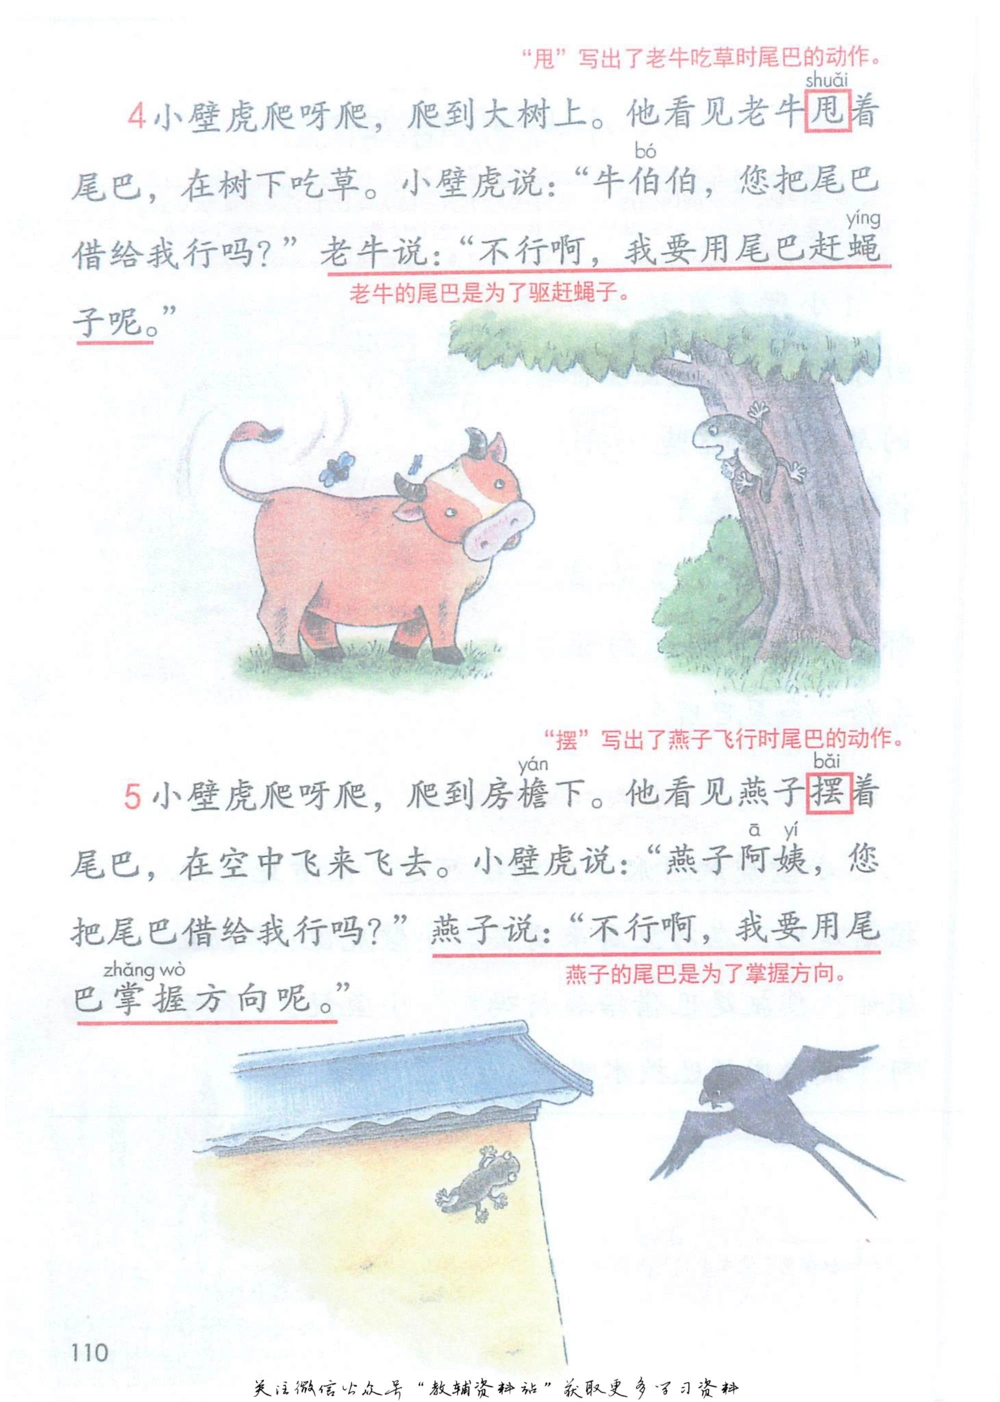 “甩”写出了老牛吃草时尾巴的动作。
shuǎi
4 小壁虎爬呀爬，爬到大树上。他看见老牛甩着
bó
尾巴，在树下吃草。小壁虎说：“牛伯伯，您把尾巴
yíng
借给我行吗？”老牛说：“不行啊，我要用尾巴赶蝇
老牛的尾巴是为了驱赶蝇子。
子呢。”
“摆”写出了燕子飞行时尾巴的动作。
yán bǎi
5 小壁虎爬呀爬，爬到房檐下。他看见燕子摆着
ā yí
尾巴，在空中飞来飞去。小壁虎说：“燕子阿姨，您
把尾巴借给我行吗？”燕子说：“不行啊，我要用尾
zhǎng wò
燕子的尾巴是为了掌握方向。
巴掌握方向呢。”
110
关注微信公众号“教辅资料站”获取更多学习资料